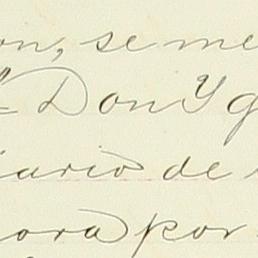 on, se me
Don Yg
iario de
ora por